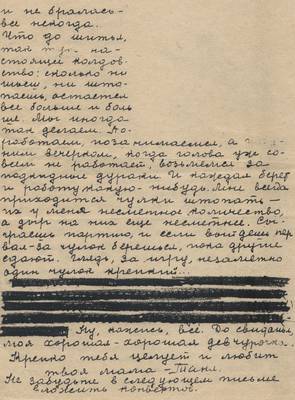 и не бралась-
все некогда.
Что до шитья,
так это на-
стоящее колдов-
ство: сколько ни
шьешь, ни што-
паешь, остается
все больше и боль
ше. Мы иногда
так делаем. По-
работаем, позанимаемся, а
ним вечерком, когда голова уже со-
всем не работает, возьмемся за
подкидных дураки. И каждая берет
и работу какую-нибудь. Мне всегда
приходится чулки штопать-
их у меня несметное количество,
а дыр на них еще несметнее. Сы-
граешь партию, и если выйдешь пер
вая-за чулок берешься, пока другие
сдают. Глядь, за игру, незаметно
один чулок крепкий...
Ну, кажись, всё. До свиданья,
моя хорошая-хорошая девчурочка.
Крепко тебя целует и любит
твоя мама-Таня.
Не забудьте в следующем письме
вложить конвертов.